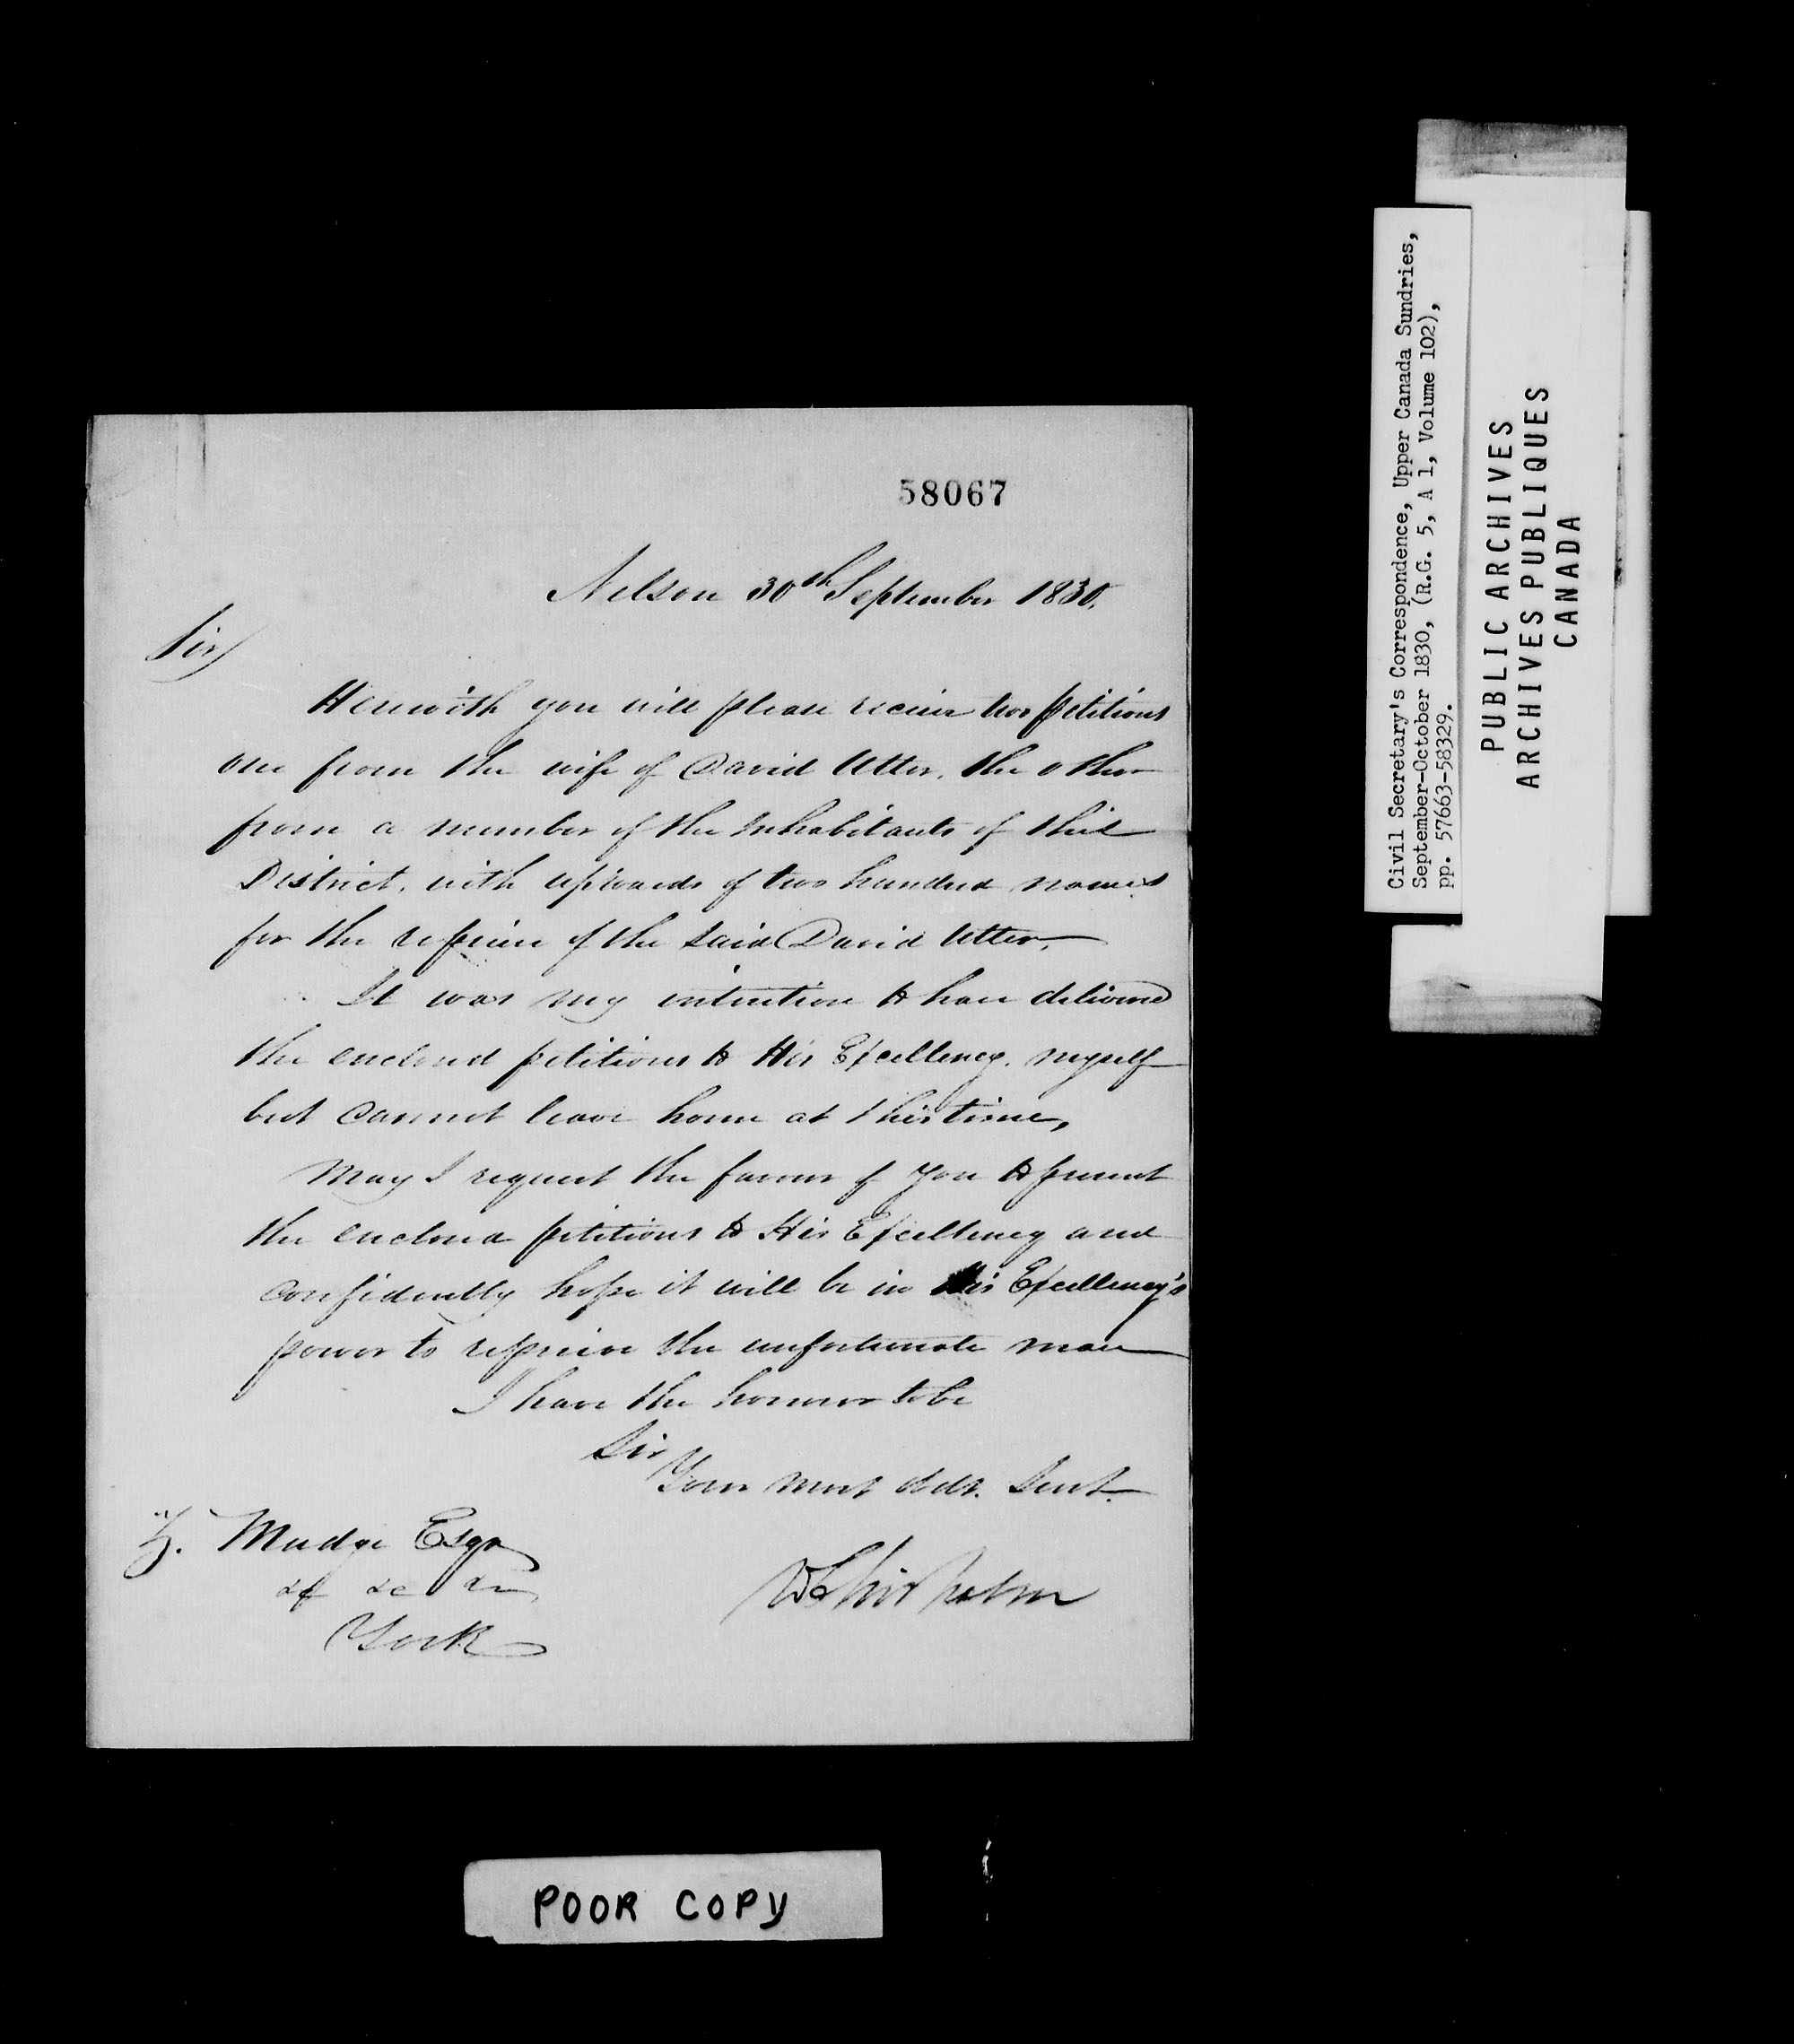 58067
Nelson 30th September 1830.
Sir
Herewith you will please recieve two petitions
one from the wife of David Utter. the other
from a number of the Inhabitants of this
District. with upwards of two hundred names
for the reprieve of the said David Utter.
It was my intention to have delivered
the enclosed petitions to His Excellency. myself
but cannot leave home at this time,
May I request the favour of you to present
the enclosed petitions to His Excellency and
confidently hope it will be in His Excellency's
power to reprieve the unfortunate man
I have the honour to be
Sir
Your most obdt. Servt.
Z. Mudge Esqr
&c &c &c
York
W Chisholm
POOR COPY
Civil Secretary's Correspondence, Upper Canada Sundries,
September-October 1830, (R.G. 5, A 1, Volume 102),
pp. 57663-58329.
PUBLIC ARCHIVES
ARCHIVES PUBLIQUES
CANADA